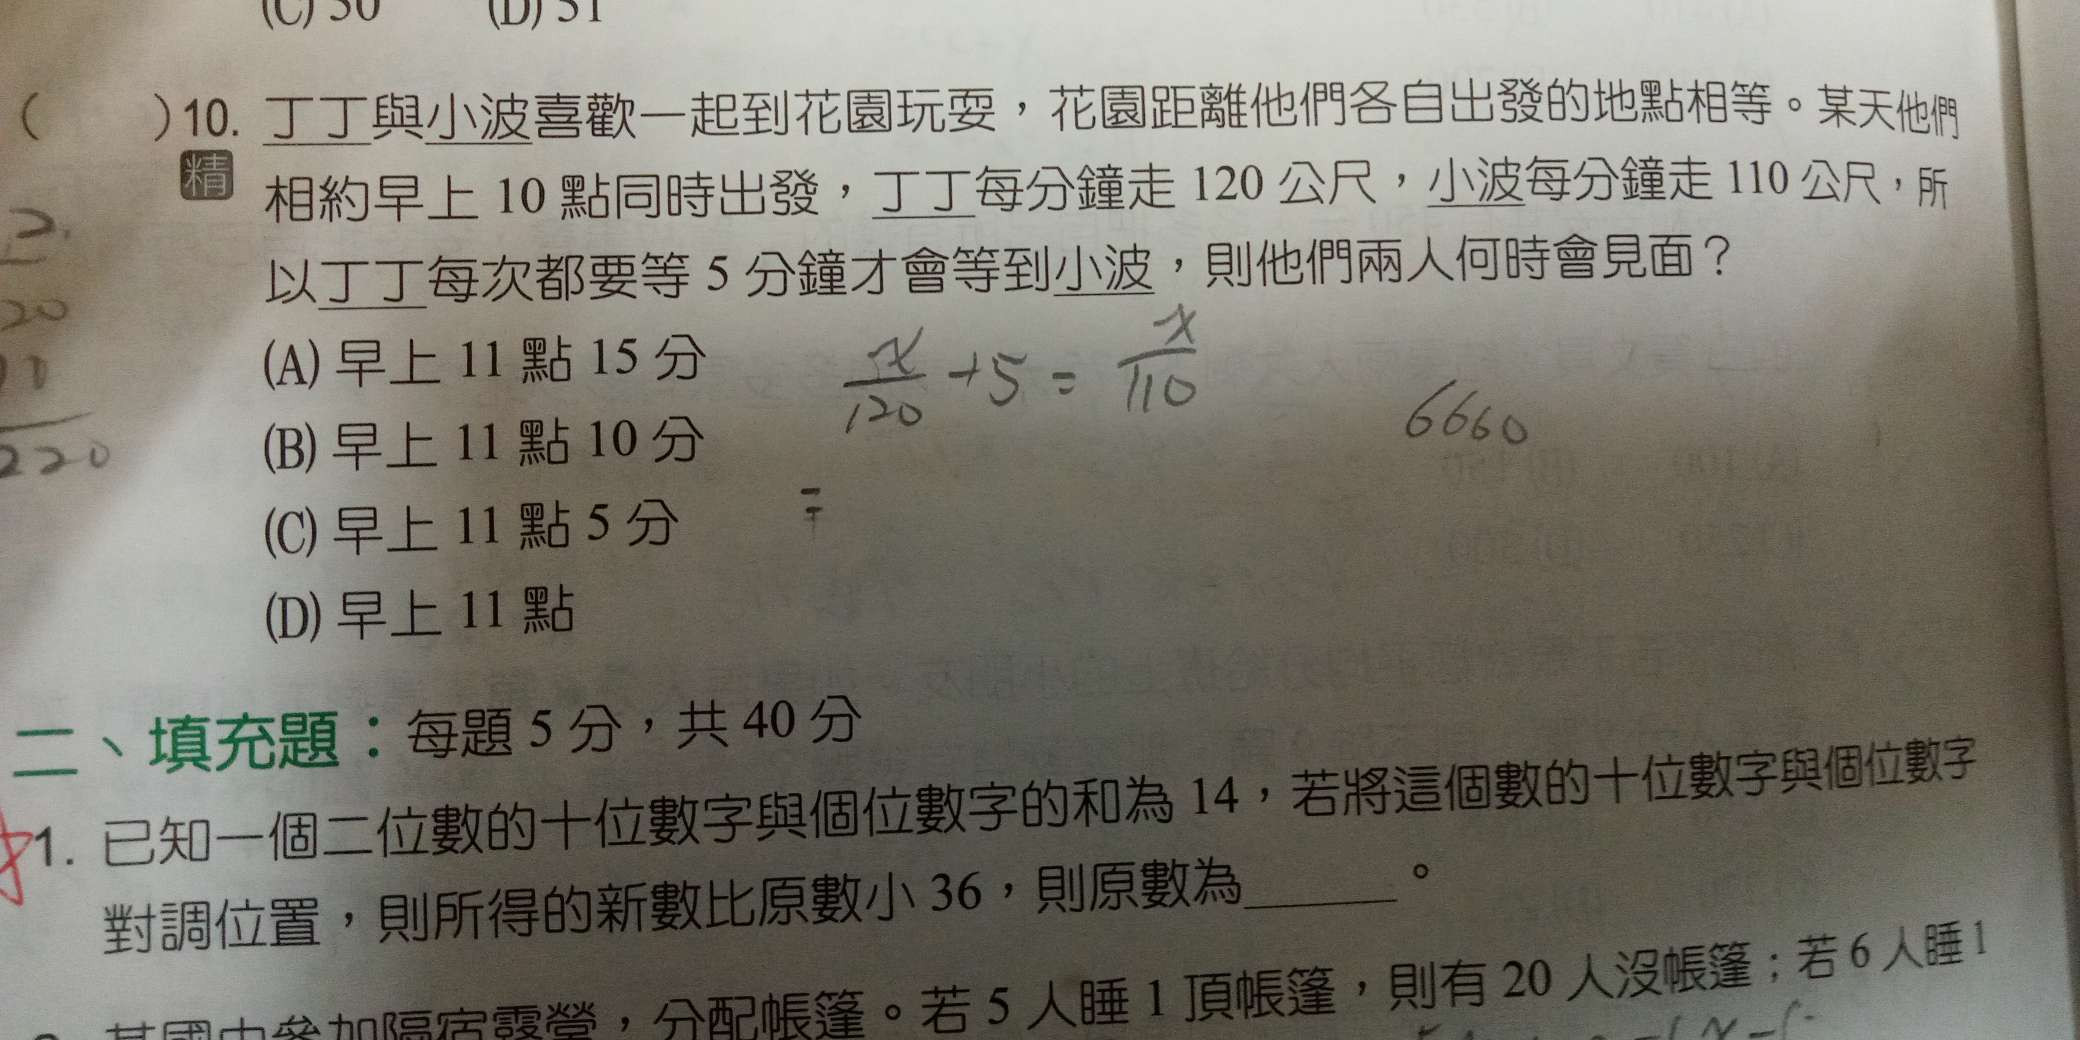 (C) 50 (D) 51
( )10. 丁丁與小波喜歡一起到花園玩耍，花園距離他們各自出發的地點相等。某天他們
精
相約早上 10 點同時出發，丁丁每分鐘走 120 公尺，小波每分鐘走 110 公尺，所
以丁丁每次都要等 5 分鐘才會等到小波，則他們兩人何時會見面？
(A) 早上 11 點 15 分
x/120 +5 = x/110
(B) 早上 11 點 10 分
6660
220
(C) 早上 11 點 5 分
=
(D) 早上 11 點
二、填充題：每題 5 分，共 40 分
1. 已知一個二位數的十位數字與個位數字的和為 14，若將這個數的十位數字與個位數字
對調位置，則所得的新數比原數小 36，則原數為______。
某國中參加隔宿露營，分配帳篷。若 5 人睡 1 頂帳篷，則有 20 人沒帳篷；若 6 人睡 1